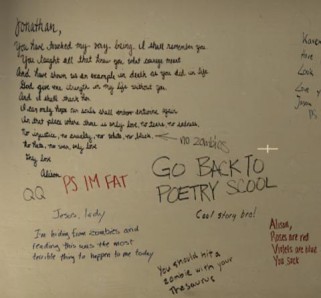 Jonathan,
You have touched my very being. I shall remember you
You taught all that knew you what courage meant
And have shown us an example in death as you did in life
God give me strength in my life without you
And I shall thank him
I can only hope our souls shall endure
in that place where there is only love, no tears, no sadness,
No injustice, no cruelty, no white, no black,
No hate, no war, only love
My love
Alison
no zombies
GO BACK TO
POETRY SCOOL
QQ
PS IM FAT
Jesus, lady
Cool story bro!
I'm hiding from zombies and
reading this was the most
terrible thing to happen to me today
You should hit a
zombie with your
Thesaurus
Alison,
Roses are red
Violets are blue
You suck
Karen
Love
Jason
PS